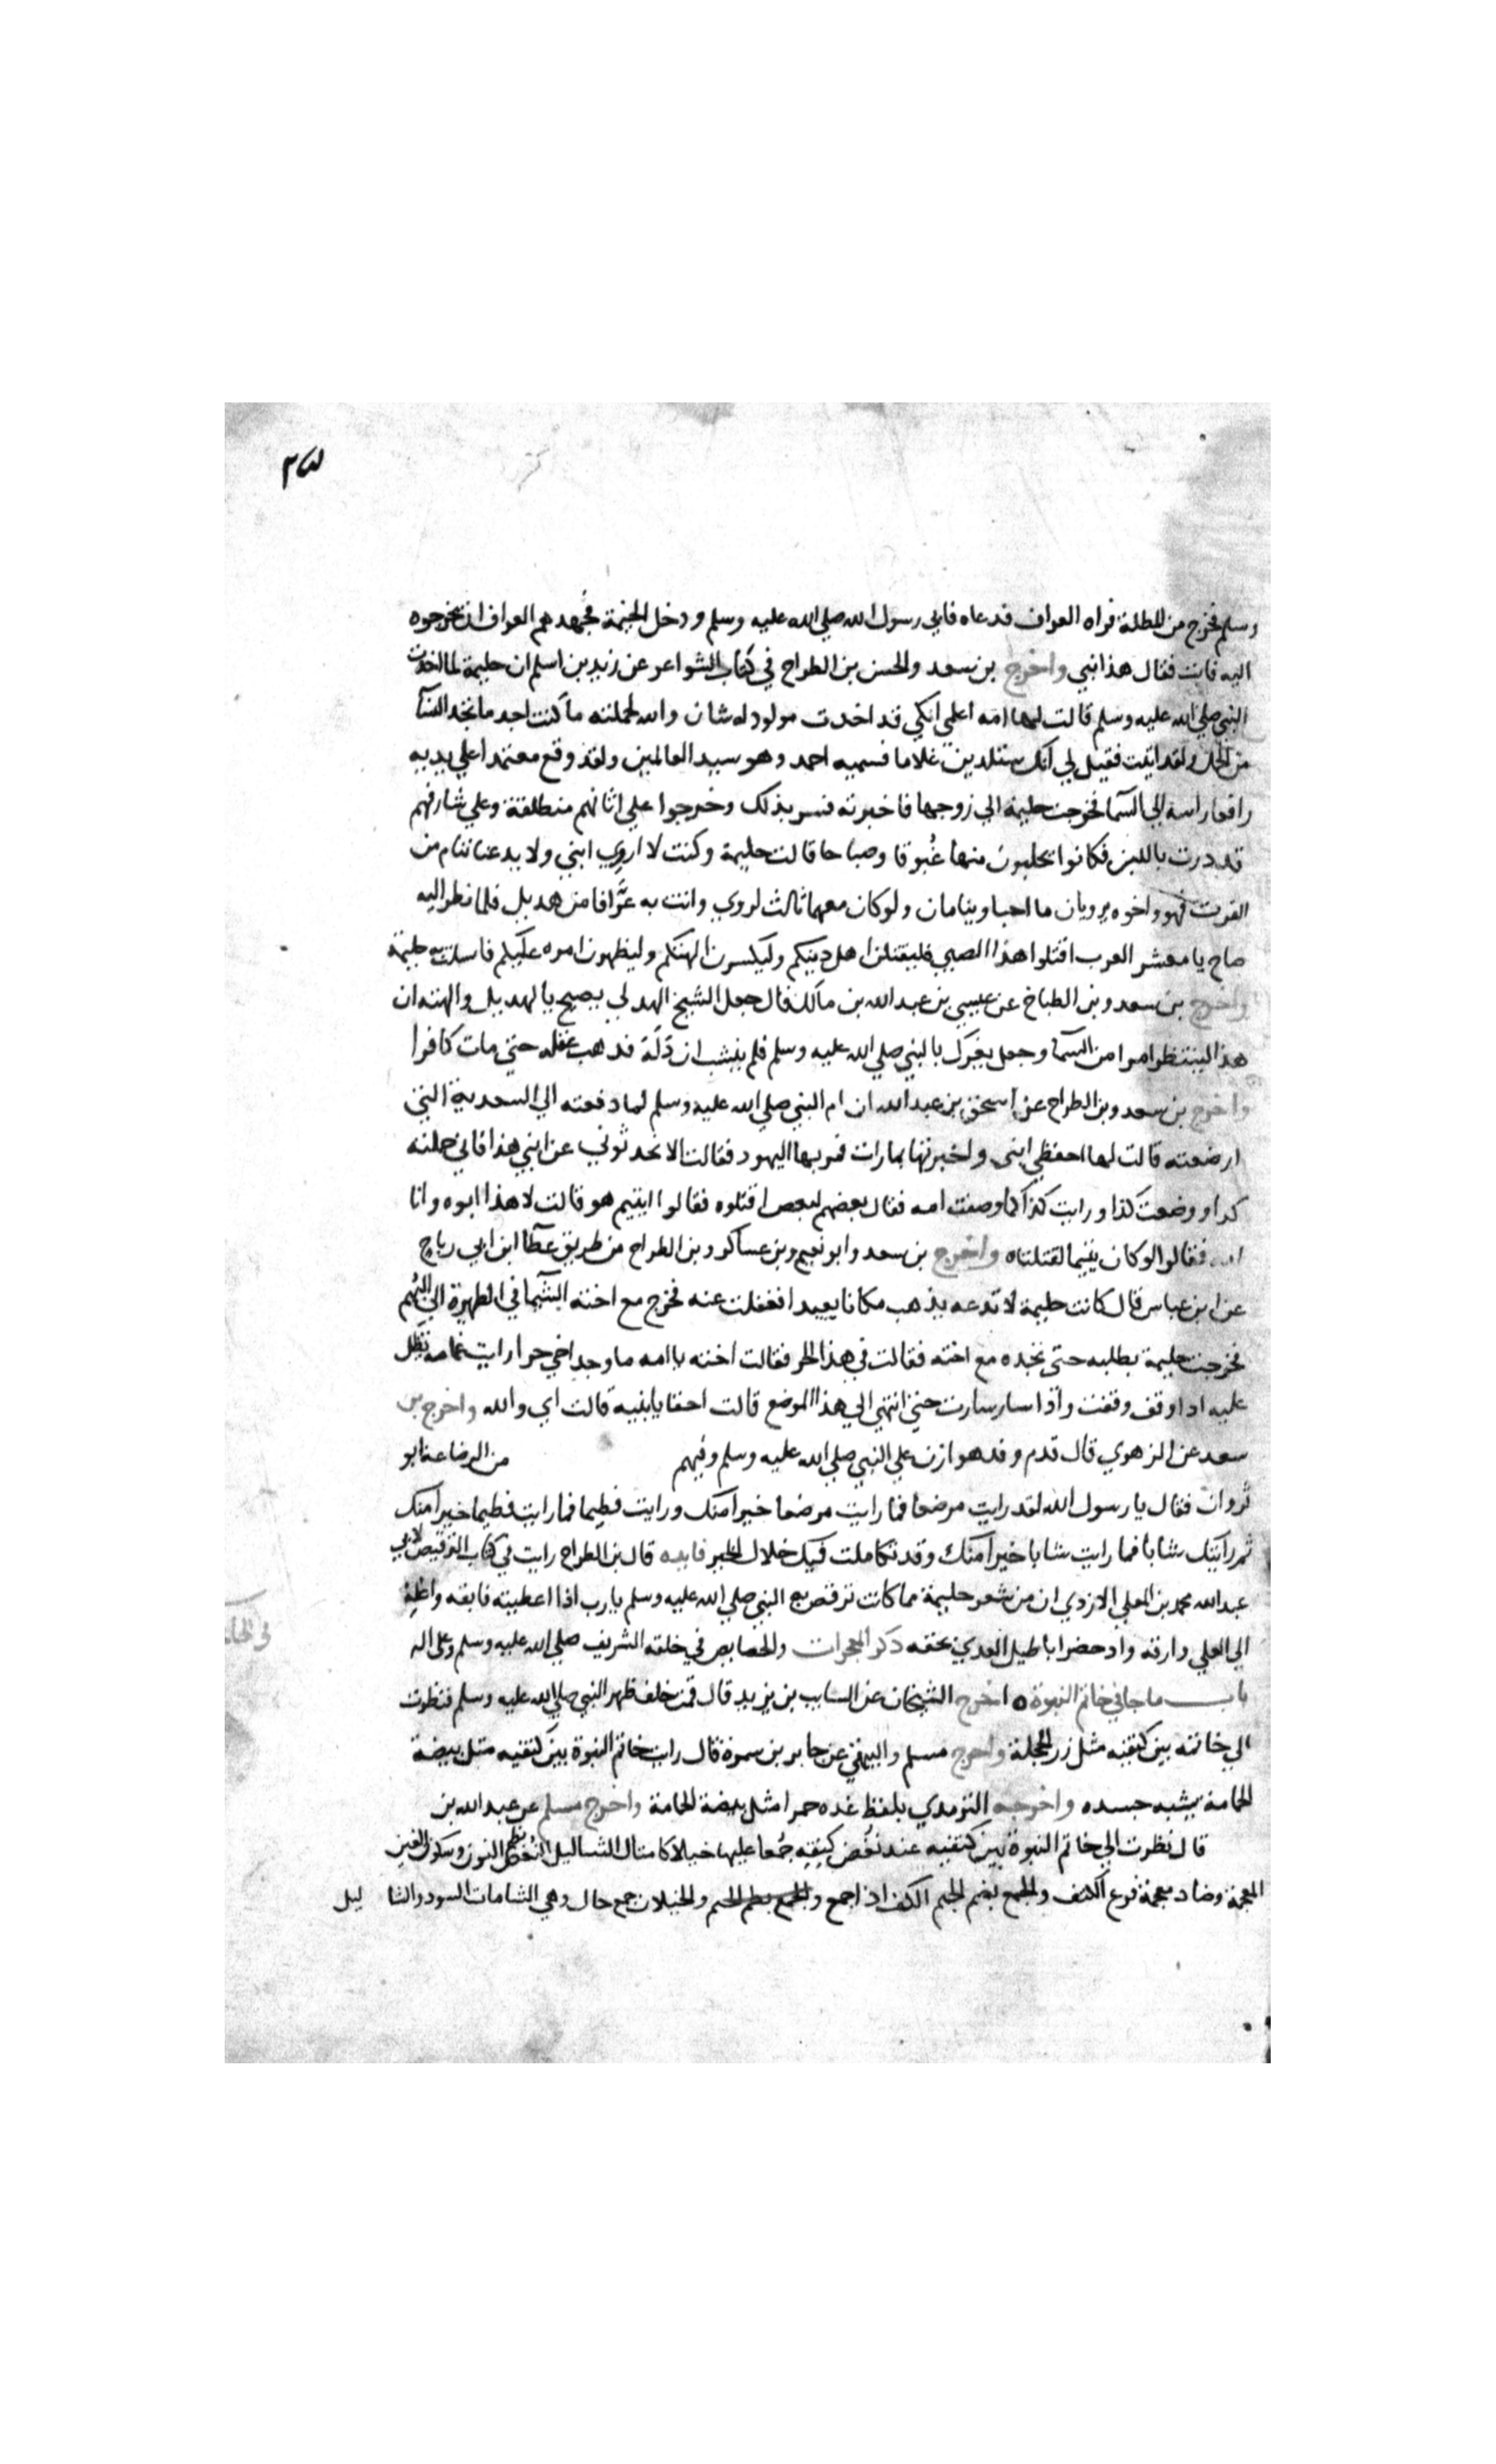 وسلم فخرج من المظلة فراه العراف فدعاه فابي رسول الله صلي الله عليه وسلم ودخل الخيمة فجهد هم العراف ان يخرجوه
اليه فابت فقال هذا نبي واخرج بن سعد والحسن بن الطراح في كتاب الشواعر عن زيد بن اسلم ان حليمة لما اخذت
النبي صلي الله عليه وسلم قالت لها امه اعلمي انكي قد اخدت مولود له شان والله لحملته ما كنت اجد ما تجد النسآ
من الحمل ولقد اتيت فقيل لي انك ستلدين غلاما فسميه احمد وهو سيد العالمين ولقد وقع معتمدا علي يديه
رافعا راسه الي السمآ فخرجت حليمة الي زوجها فاخبرته فسر بذلك وخرجوا علي اتانهم منطلقة وعلي شارفهم
قد درت باللبن فكانوا يحلبون منها غبوقا وصباحا قالت حليمة وكنت لا اروي ابني ولا يدعنا ننام من
الغرث فهو واخوه يرويان ما احبا وينامان ولو كان معهما ثالث لروي واتت به عرافا من هديل فلما نظر اليه
صاح يا معشر العرب اقتلوا هذا الصبي فليقتلن اهل دينكم وليكسرن الهتكم وليظهرن امره عليكم فانسلت به حليمة
واخرج بن سعد وبن الطباخ عن عيسي بن عبد الله بن مالك قال جعل الشيخ الهدلي يصيح يا لهديل والهته ان
هذا لينتظر امرا من السمآ وجعل يغري بالنبي صلي الله عليه وسلم فلم ينشب ان دله فدهب عقله حتي مات كافرا
واخرج بن سعد وبن الطراح عن اسحق بن عبد الله ان ام النبي صلي الله عليه وسلم لما دفعته الي السعدية التي
ارضعته قالت لها احفظي ابني واخبرتها بما رات فمر بها اليهود فقالت الا تحدثوني عن ابني هذا فاني حملته
كدا ووضعت كذا ورايت كذا كما وصفت امه فقال بعضهم لبعص اقتلوه فقالوا ايتيم هو قالت لا هذا ابوه وانا
امه فقالوا لو كان يتيما لقتلناه واخرج بن سعد وابو نعيم وبن عساكر وبن الطراح من طريق عطآ ابن ابي رباح
عن ابن عباس قال كانت حليمة لا تدعه يذهب مكانا بعيدا فغفلت عنه فخرج مع اخته الشيما في الظهيرة الي البهم
فخرجت حليمة بطلبه حتي تجده مع اخته فقالت في هذا الحر فقالت اخته ياامه ما وجد اخي حرا رايت غمامه تظل
عليه ادا وقف وقفت واذا سار سارت حتي انتهي الي هذا الموضع قالت احقا يابنيه قالت اي والله واخرج بن
سعد عن الزهري قال قدم وفد هوازن علي النبي صلي الله عليه وسلم وفيهم من الرضاعة ابو
ثروان فقال يا رسول الله لقد رايت مرضعا فما رايت مرضعا خيرا منك ورايت فطيما فما رايت فطيما خيرا منك
ثم رايتك شابا فما رايت شابا خيرا منك وقد تكاملت فيك خلال الخير فايده قال بن الطراح رايت في كتاب الترقيص لابي
عبد الله محمد بن المعلي الازدي ان من شعر حليمة مما كانت ترقص به النبي صلي الله عليه وسلم يا رب اذا اعطيته فابقه واعله
الي العلي وارقه وادحض اباطيل العدي بحقه ذكر المعجزات والخصايص في خلقه الشريف صلي الله عليه وسلم وعلى اله
باب ما جا في خاتم النبوة اخرج الشيخان عن السايب بن يزيد قال قمت خلف ظهر النبي صلي الله عليه وسلم فنظرت
الي خاتمه بين كتفيه مثل زر الحجلة واخرج مسلم والبيهقي عن جابر بن سمرة قال رايت خاتم النبوة بين كتفيه مثل بيضة
الحامة يشبه جسده واخرجه الترمدي بلفظ غده حمرا مثل بيضة الحامة واخرج مسلم عن عبد الله بن
قال نظرت الي خاتم النبوة بين كتفيه عند نغض كتفه جمعا عليها خيلان كامثال الثساليل النغض بضم النون وسكون الغين
المعجمة وضاد معجمة فرع الكتف والجمع بضم الجيم الكف اذا جمع والجمع بضم الجيم والخيلان جمع خال وهي الشامات السود والثا ليل